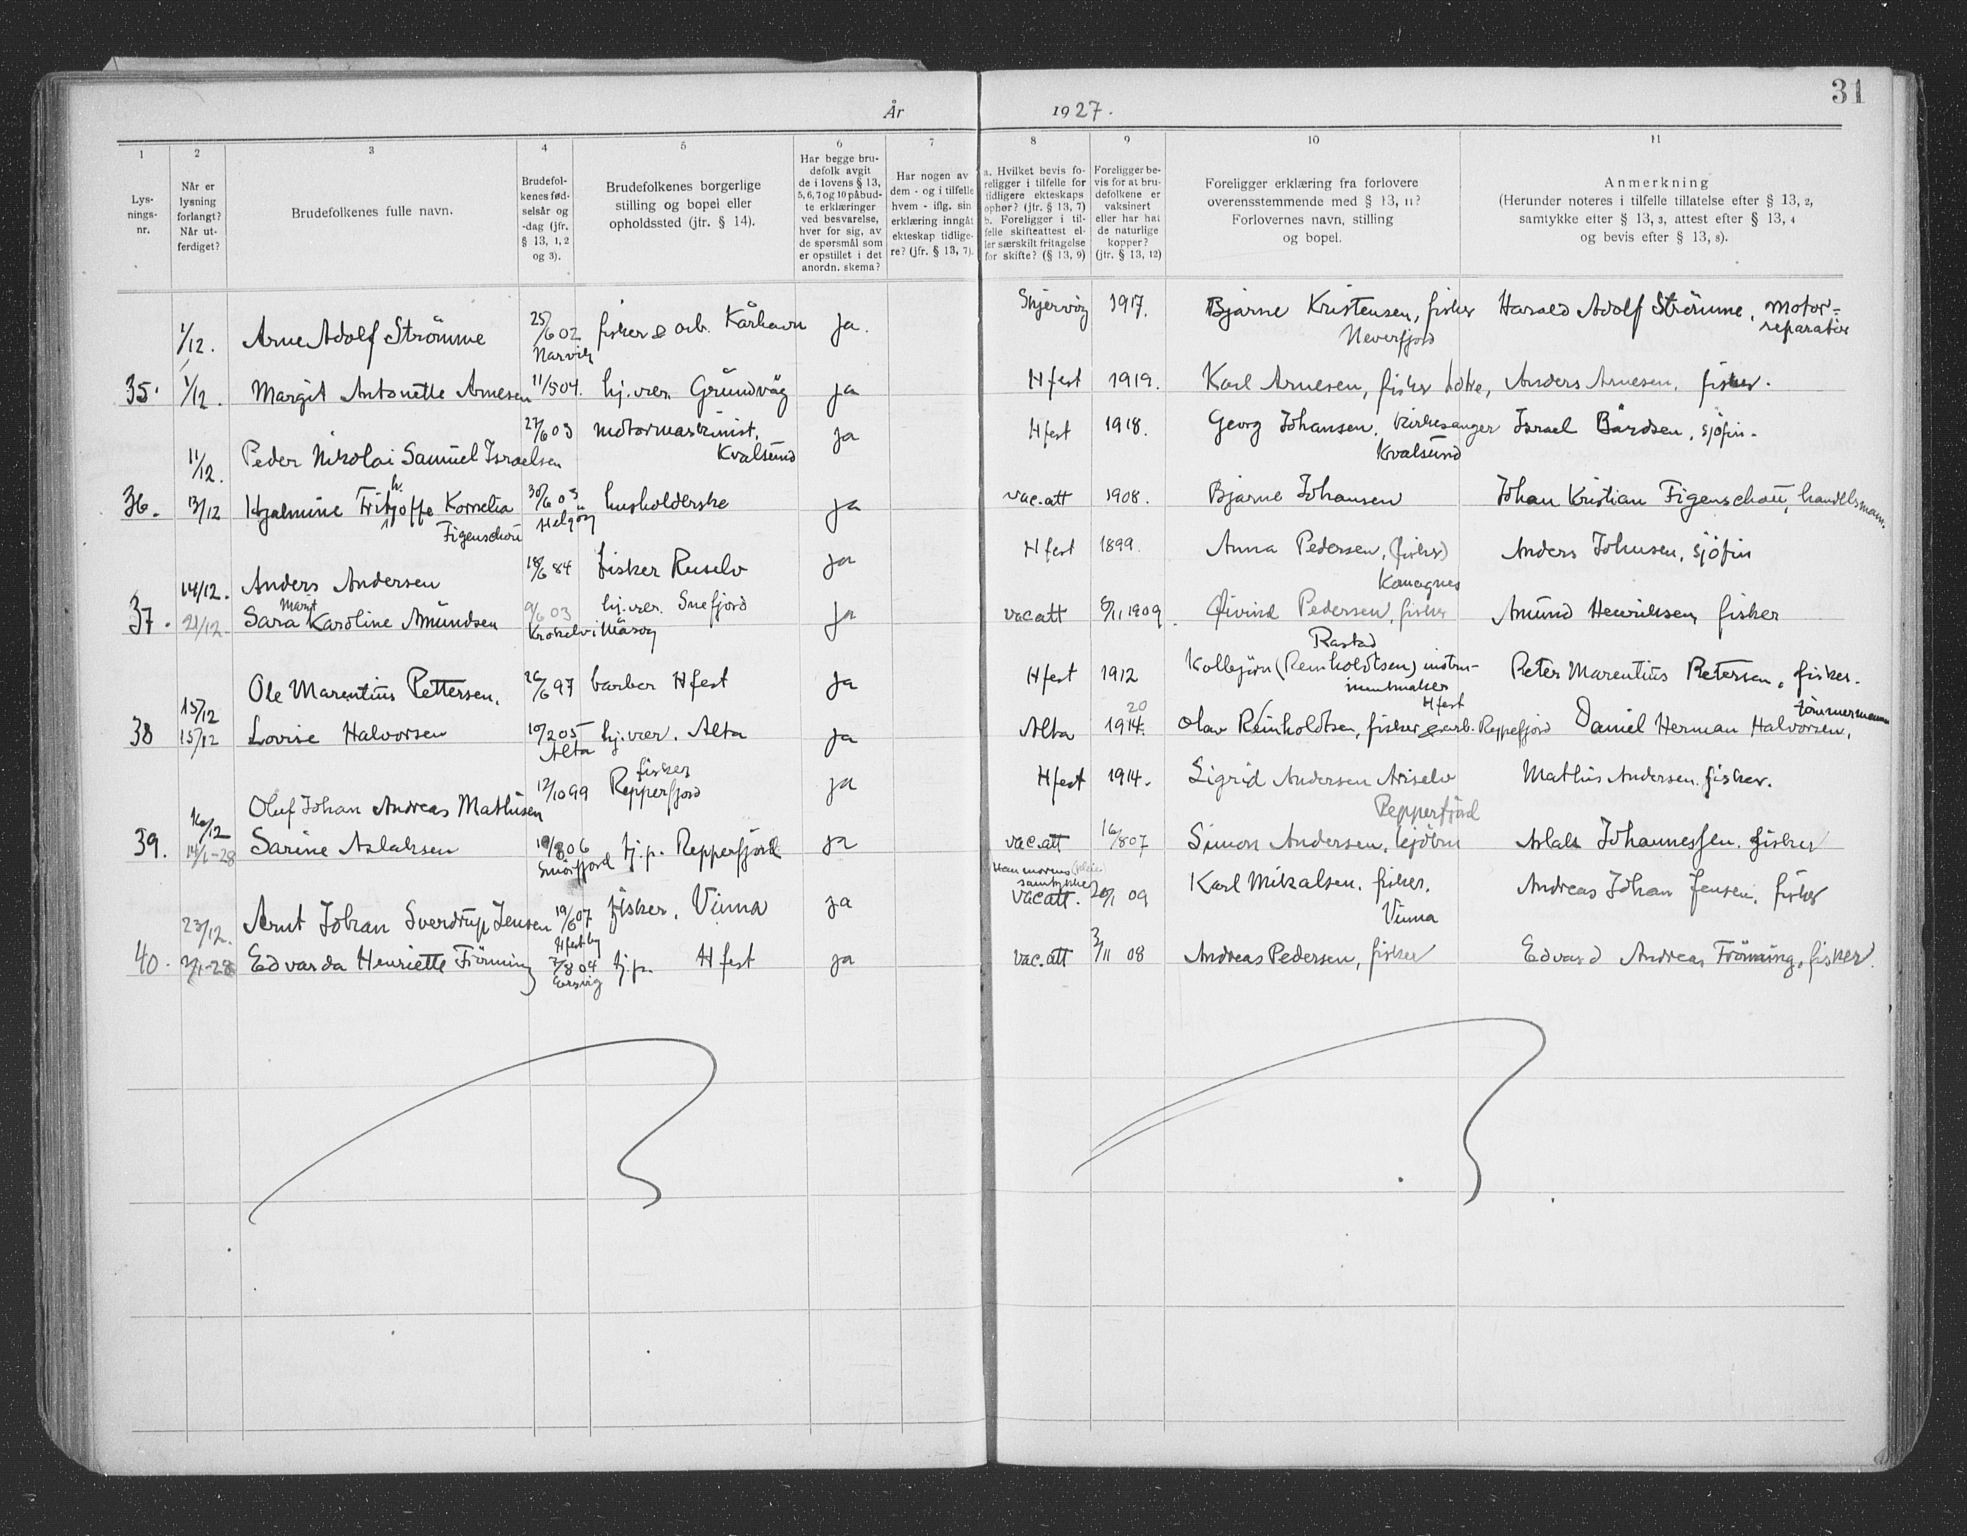 År 1927. 31
1 2 3 4 5 6 7 8 9 10 11
Lys-
nings-
nr.
Når er
lysning
forlangt?
Når ut-
ferdiget?
Brudefolkenes fulle navn.
Brudefol-
kenes fød-
selsår og
-dag (jfr.
§ 13, 1, 2
og 3).
Brudefolkenes borgerlige
stilling og bopel eller
opholdssted (jfr. § 14).
Har begge bru-
defolk avgit
de i lovens § 13,
5, 6, 7 og 10 påbud-
te erklæringer
ved besvarelse,
hver for sig, av
de spørsmål som
er opstillet i det
anordn. skema?
Har nogen av
dem - og i tilfelle
hvem - iflg. sin
erklæring inngåt
ekteskap tidlige-
re? (jfr. § 13, 7).
a. Hvilket bevis fo-
religger i tilfelle for
tidligere ekteskaps
ophør? (jfr. § 13, 7)
b. Foreligger i til-
felle skifteattest el-
ler særskilt fritagelse
for skifte? (§ 13, 9)
Foreligger be-
vis for at bru-
defolkene er
vaksinert
eller har hat
de naturlige
kopper?
(jfr. § 13, 12)
Foreligger erklæring fra forlovere
overensstemmende med § 13, 11?
Forlovernes navn, stilling
og bopel.
Anmerkning
(Herunder noteres i tilfelle tillatelse efter § 13, 2,
samtykke efter § 13, 3, attest efter § 13, 4
og bevis efter § 13, 8).
1/12. Arne Adolf Strömme 25/6 02 Narvik fisker & arb. Kårhavn ja. Skjervöy 1917. Bjarne Kristensen, fisker Neverfjord Harald Adolf Strömme, motor-
reparatör
35. 1/12. Margit Antonette Arnesen 11/5 04. hj.vær. Grundvåg ja Hfest 1919. Karl Arnesen, fisker Anders Arnesen, fisker.
11/12. Peder Nikolai Samuel Israelsen 27/6 03 motormaskinist, Kvalsund ja Hfest 1918. Georg Johansen, kirkesanger Kvalsund Israel Bårdsen, sjöfin.
36. 13/12 Hjalmine Frithjoffe Kornelia Figenschou 30/6 05 Helgöy husholderske ja vac.att 1908. Bjarne Johansen Johan Kristian Figenschau, handelsmann.
14/12. Anders Andersen 18/6 84 fisker Ruselv ja Hfest 1899. Anna Pedersen, (fisker) Komagnes Anders Johnsen, sjöfin
37. 21/12 Sara Margit Karoline Amundsen 9/6 03 Krokelv i Måsöy hj.vær. Snefjord ja vac att 6/11 1909. Öivind Pedersen, fisker Amund Henriksen, fisker
15/12 Ole Marentius Pettersen. 26/6 97 barber Hfest ja Hfest 1912 Kolbjörn (Reinholdtsen) instru-
mentmaker Hfest Peter Marentius Petersen, fisker.
38 15/12 Lovise Halvorsen 10/2 05 Alta hj.vær. Alta ja Alta 1914. 20 Olav Reinholdtsen, fisker & arb. Reppefjord Daniel Herman Halvorsen, tömmermann
16/12 Oluf Johan Andreas Mathisen 12/10 99 fisker Repperfjord ja Hfest 1914. Sigrid Andersen Repperfjord Mathis Andersen. fisker.
39. 14/1-28 Sarine Aslaksen 10/8 06 Snöfjord tj.p. Repperfjord ja vac.att 16/8 07 Simon Andersen, Aslak Johannessen. fisker
23/12. Arnt Johan Sverdrup Jensen 19/6 07 Hfest by fisker, Vinna ja samtykke vac att. 20/1 09 Karl Mikalsen. fisker. Vinna Andreas Johan Jensen, fisker
40. 2/1-28 Edvarda Henriette Frönning 7/8 04 tj.p. Hfest ja vac.att 3/11 08 Andreas Pedersen, fisker Edvard Andreas Frönning, fisker.